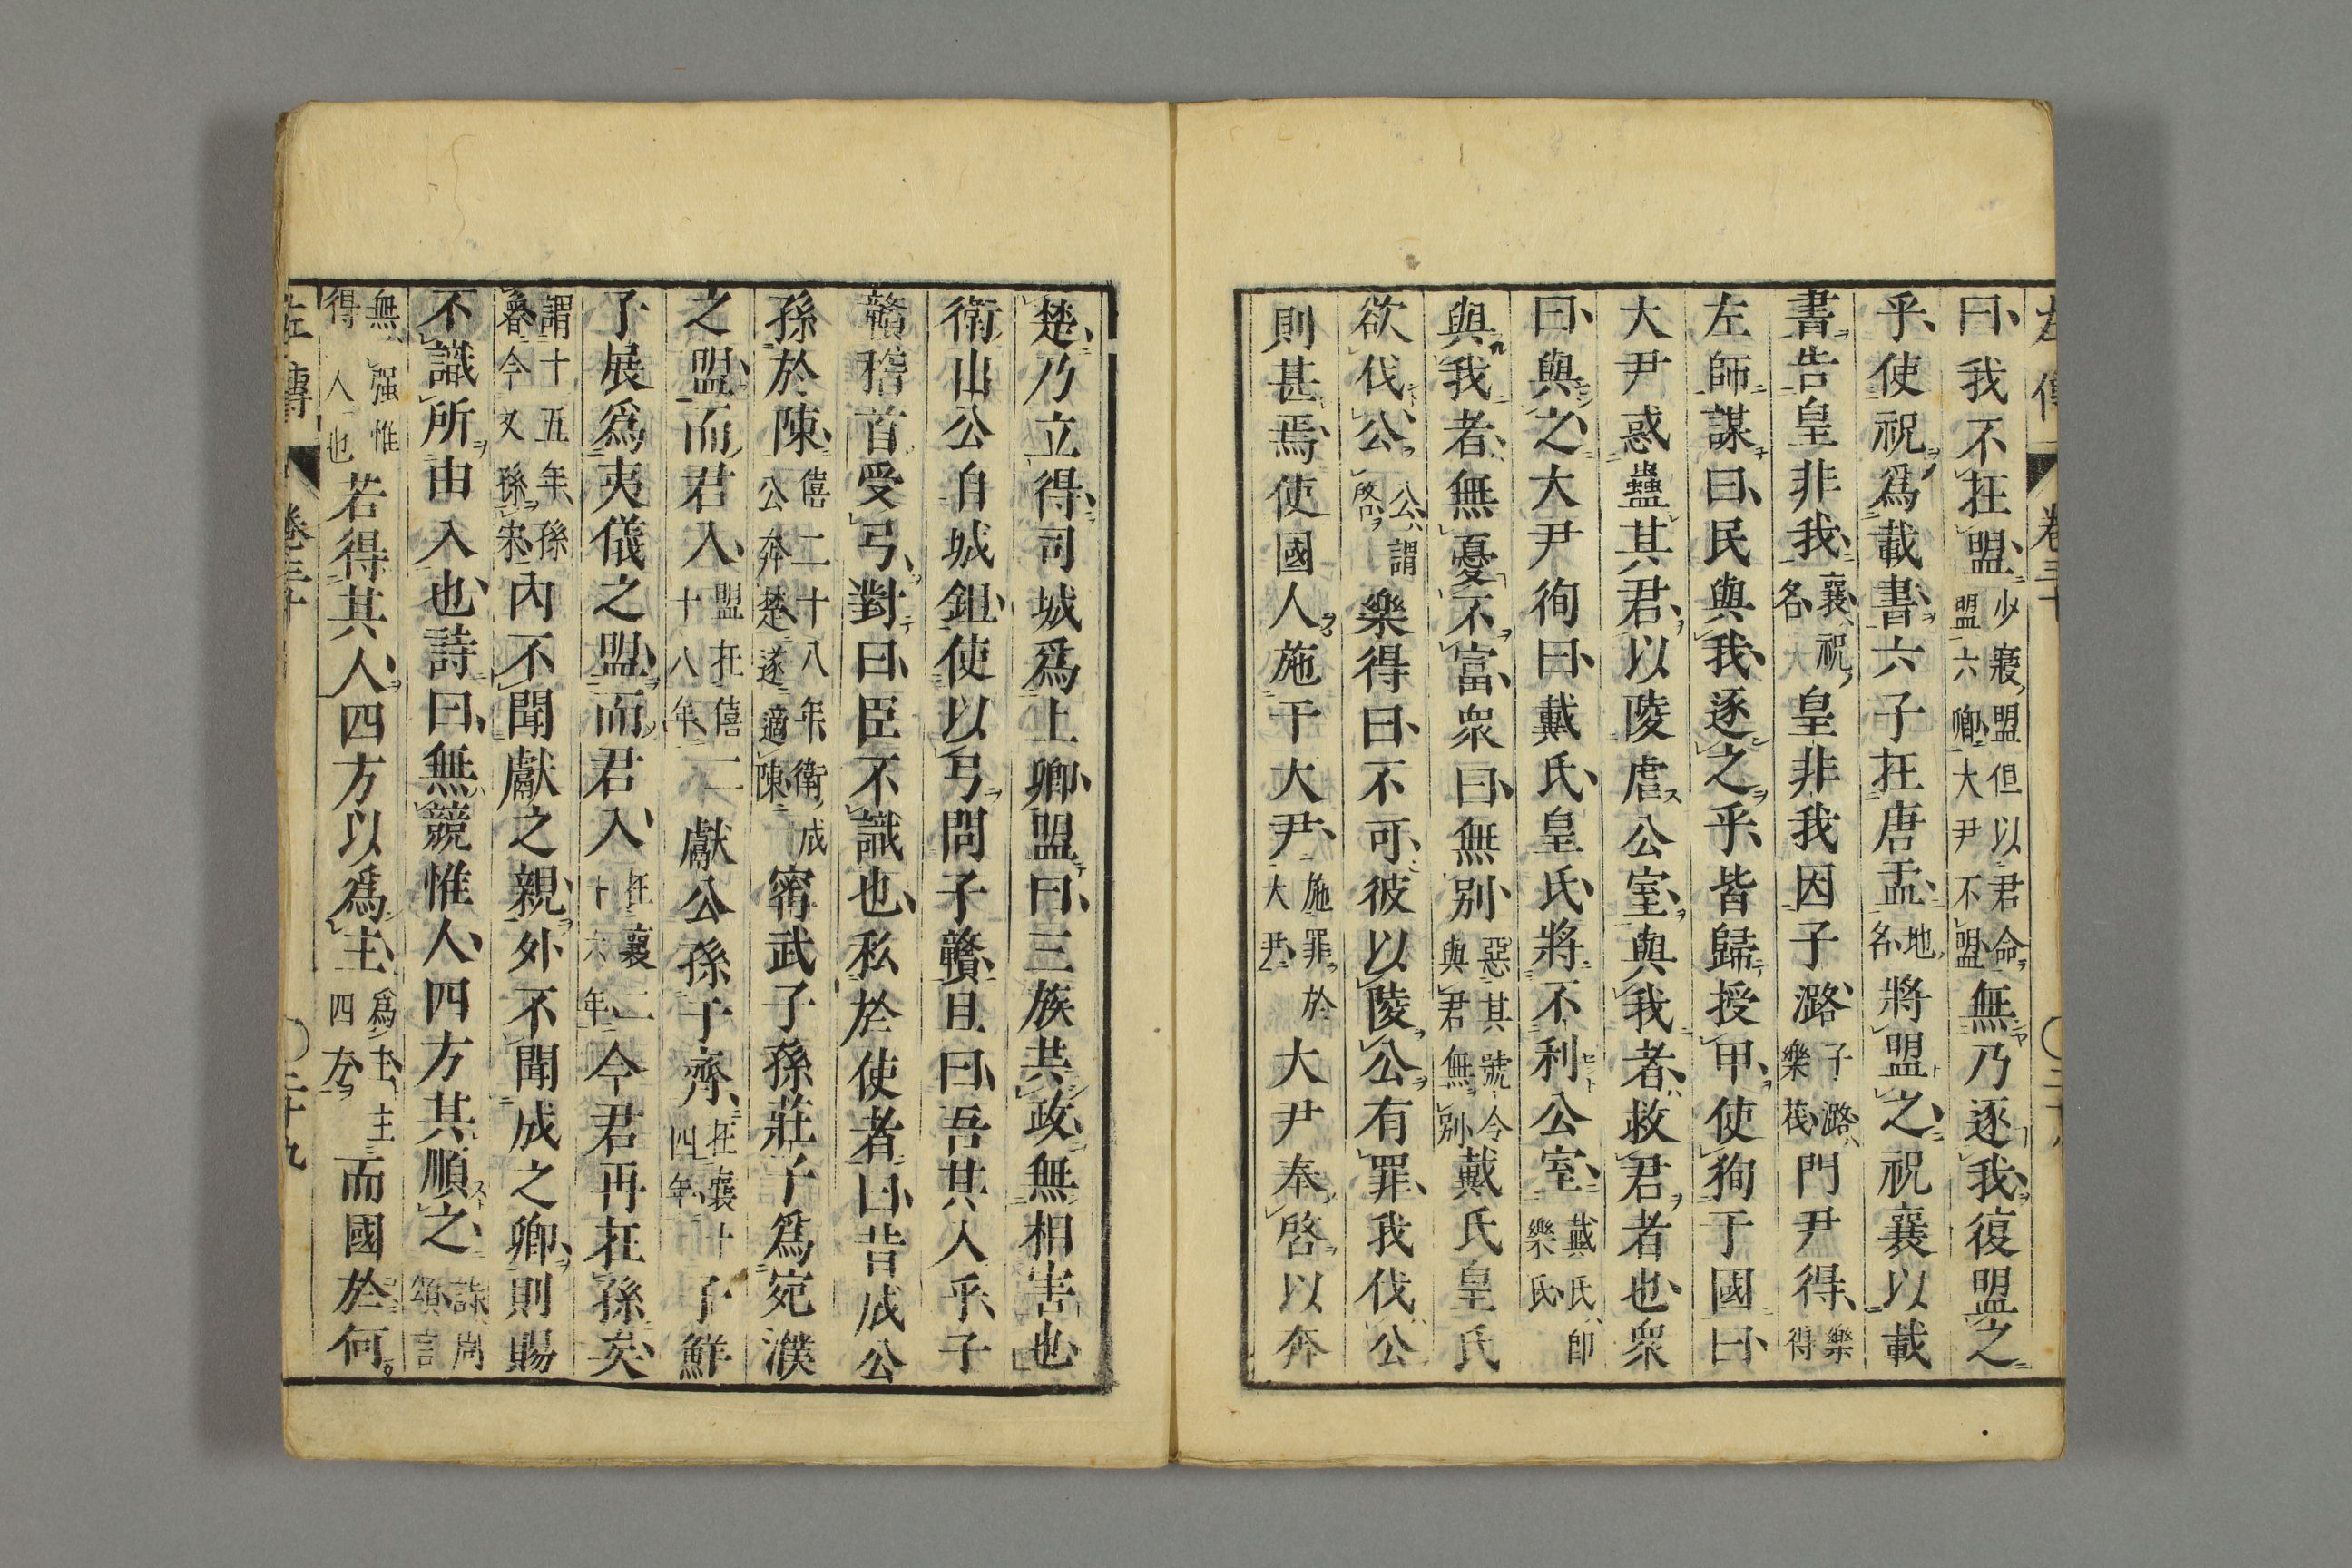 曰我不在盟少寢盟但以君命盟六卿大尹不盟無乃逐我復盟之
乎使祝爲載書六子在唐盂地名將盟之祝襄以載
書告皇非我襄祝名皇非我因子潞子潞樂茷門尹得樂得
左師謀曰民與我逐之乎皆歸授甲使徇于國曰
大尹惑蠱其君以陵虐公室與我者救君者也衆
曰與之大尹徇曰戴氏皇氏將不利公室戴氏即樂氏
與我者無憂不富衆曰無別惡其號令與君無別戴氏皇氏
欲伐公公謂啓樂得曰不可彼以陵公有罪我伐公
則甚焉使國人施于大尹施罪於大尹大尹奉啓以奔
楚乃立得司城爲上卿盟曰三族共政無相害也
衛出公自城鉏使以弓問子贛且曰吾其入乎子
贛稽首受弓對曰臣不識也私於使者曰昔成公
孫於陳僖二十八年衛成公奔楚遂適陳甯武子孫莊子爲宛濮
之盟而君入盟在僖二十八年獻公孫于齊在襄十四年子鮮
子展爲夷儀之盟而君入在襄二十六年今君再在孫矣
謂十五年孫魯今又孫宋內不聞獻之親外不聞成之卿則賜
不識所由入也詩曰無競惟人四方其順之詩周頌言
無強惟得人也若得其人四方以爲主爲主主四方而國於何
左傳 卷三十 二十九